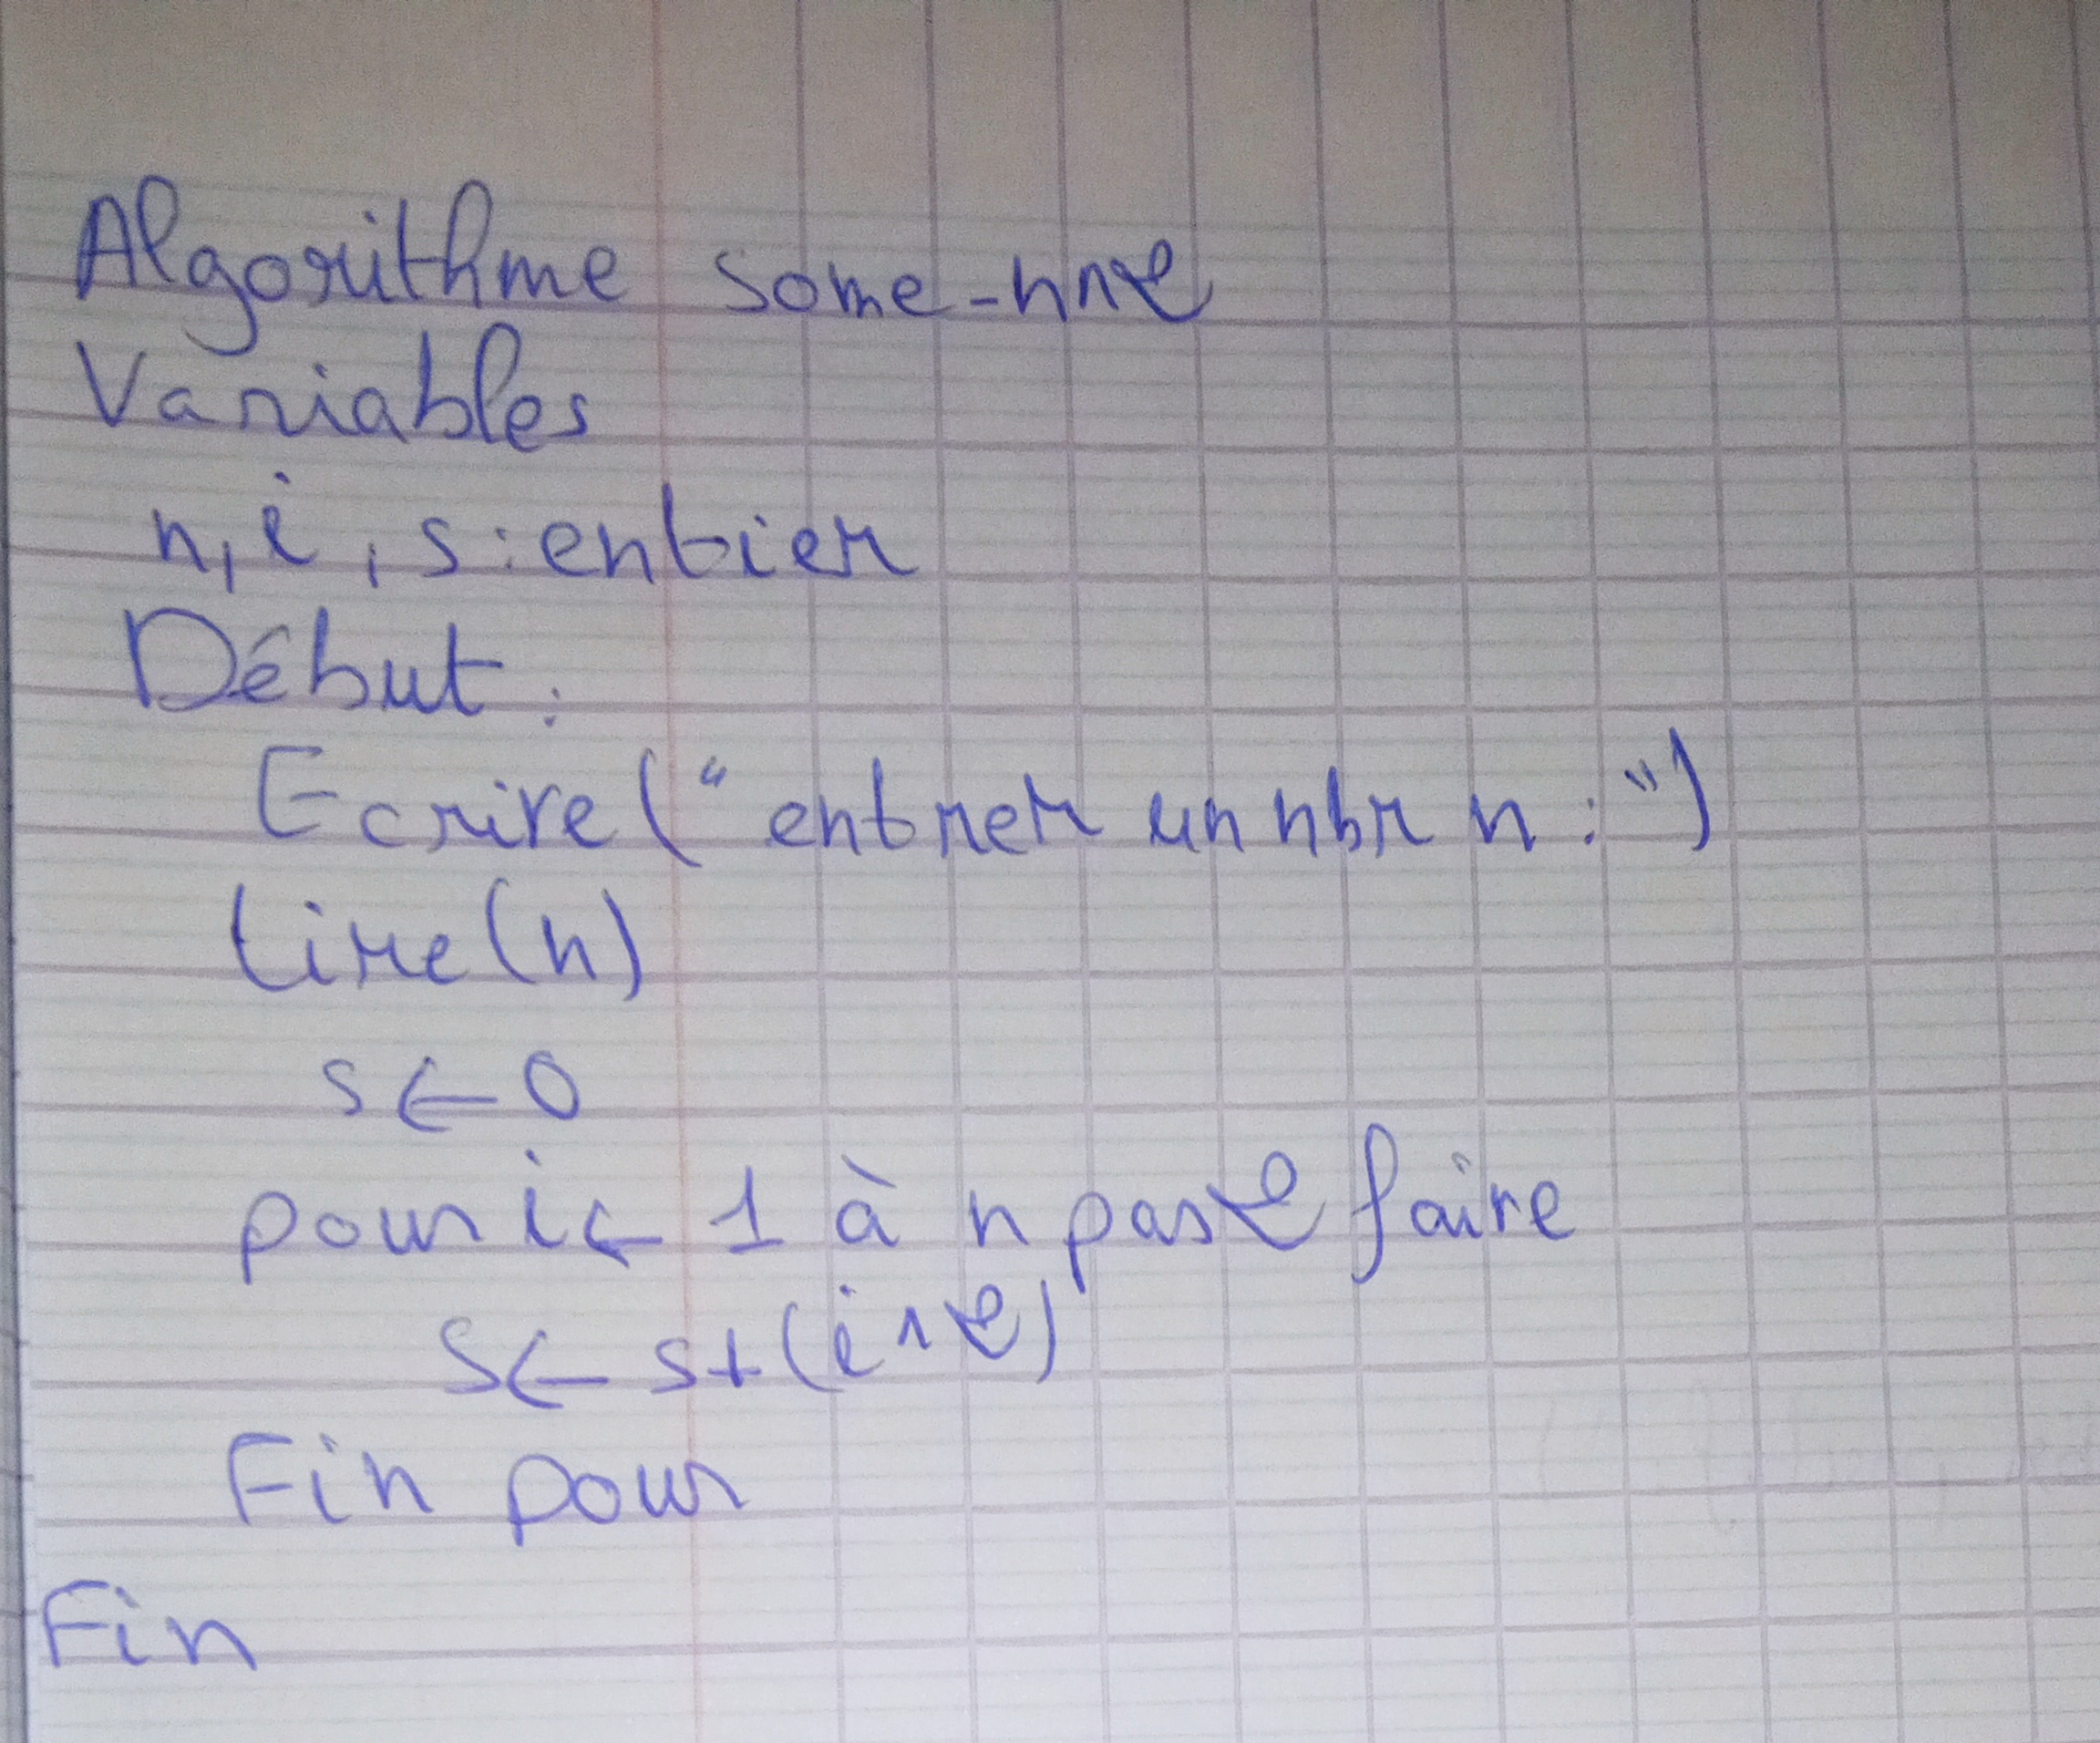 Algorithme some-n^2
Variables
n, i, s : entier
Début :
Ecrire (" entrer un nbr n : ")
Lire (n)
s ← 0
pour i ← 1 à n pas 2 faire
S ← s + (i ^ 2)
Fin pour
Fin